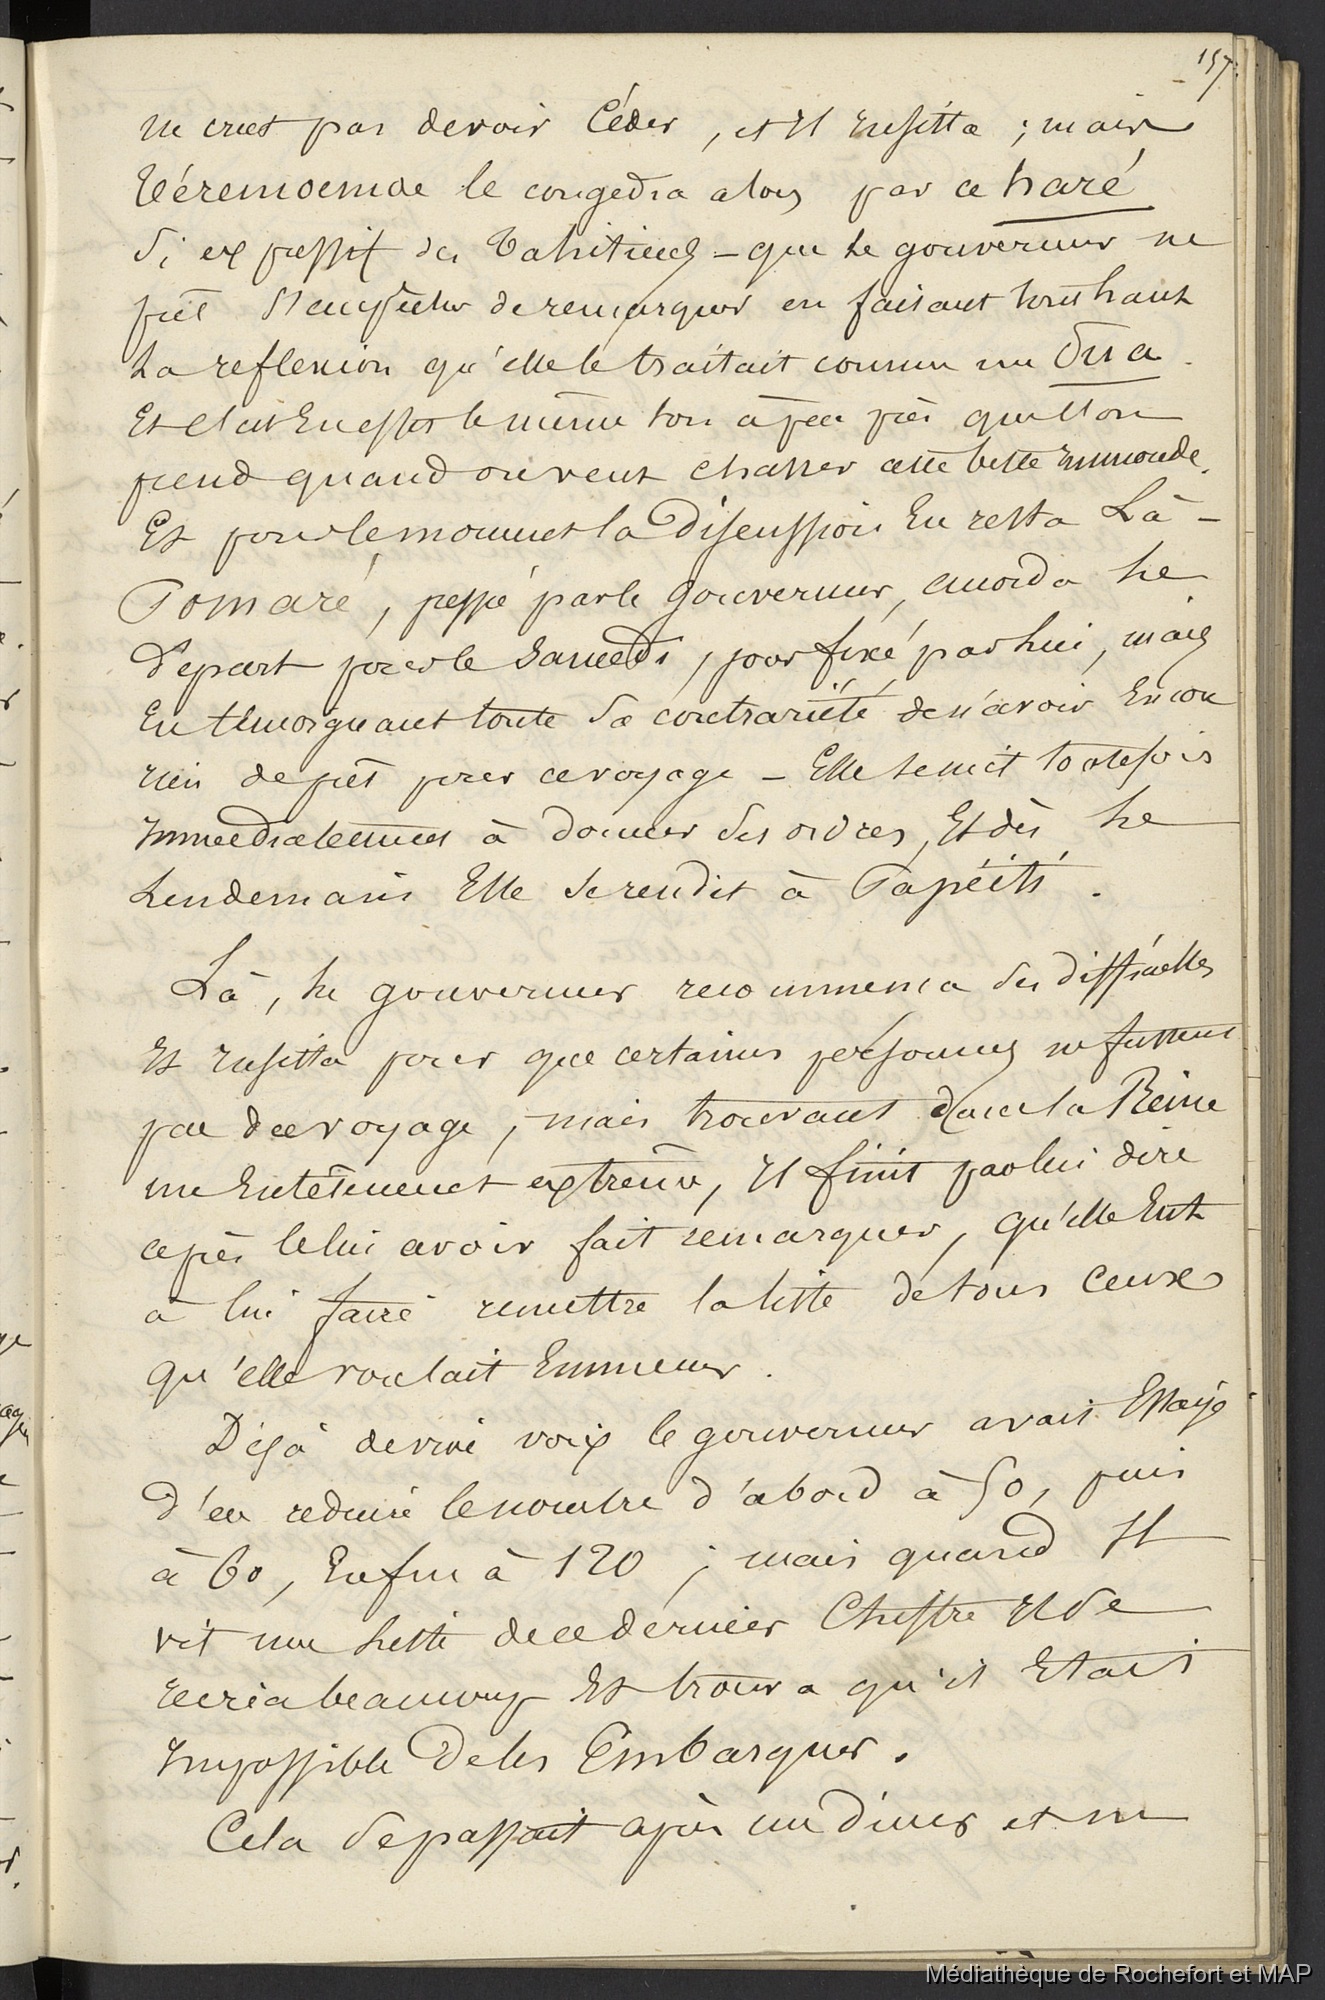 157.
ne crut pas devoir Céder, et Il Insista ; mais
Téremoemoe le congédia alors par ce haré
si expressif des Tahitiens – que le gouverneur ne
put s'empêcher de remarquer en faisant tout haut
La reflexion qu'elle le traitait comme un Oua.
Et c'etait En effet le même ton à peu près que l'on
prend quand on veut chasser cette bette Immonde.
Et pour le moment la Discussion En resta Là –
Pomaré, pressé par le gouverneur, accorda Le
Départ pour le Samedi, jour fixé par lui, mais
En témoignant toute sa contrariété de n'avoir Encore
rien de prêt pour ce voyage – Elle se mit toutefois
Immediatement à donner des ordres, Et dès Le
Lendemain Elle se rendit à Papéiti.
Là, Le gouverneur recommença des difficultés
Et Insista pour que certaines personnes ne fussent
pas du voyage, mais trouvant dans la Reine
un Entêtement extrême, Il finit par lui dire
après le lui avoir fait remarquer, qu'elle Eut
à lui faire remettre la liste de tous Ceux
qu'elle voulait Emmener.
Déjà de vive voix le gouverneur avait Essayé
d'en réduire le nombre d'abord à 50, puis
à 60, Enfin à 120 ; mais quand Il
vit une Liste de ce dernier Chiffre Il se
recria beaucoup Et trouva qu'il Etait
Impossible de les Embarquer.
Cela se passait après un diner et ne
Médiathèque de Rochefort et MAP